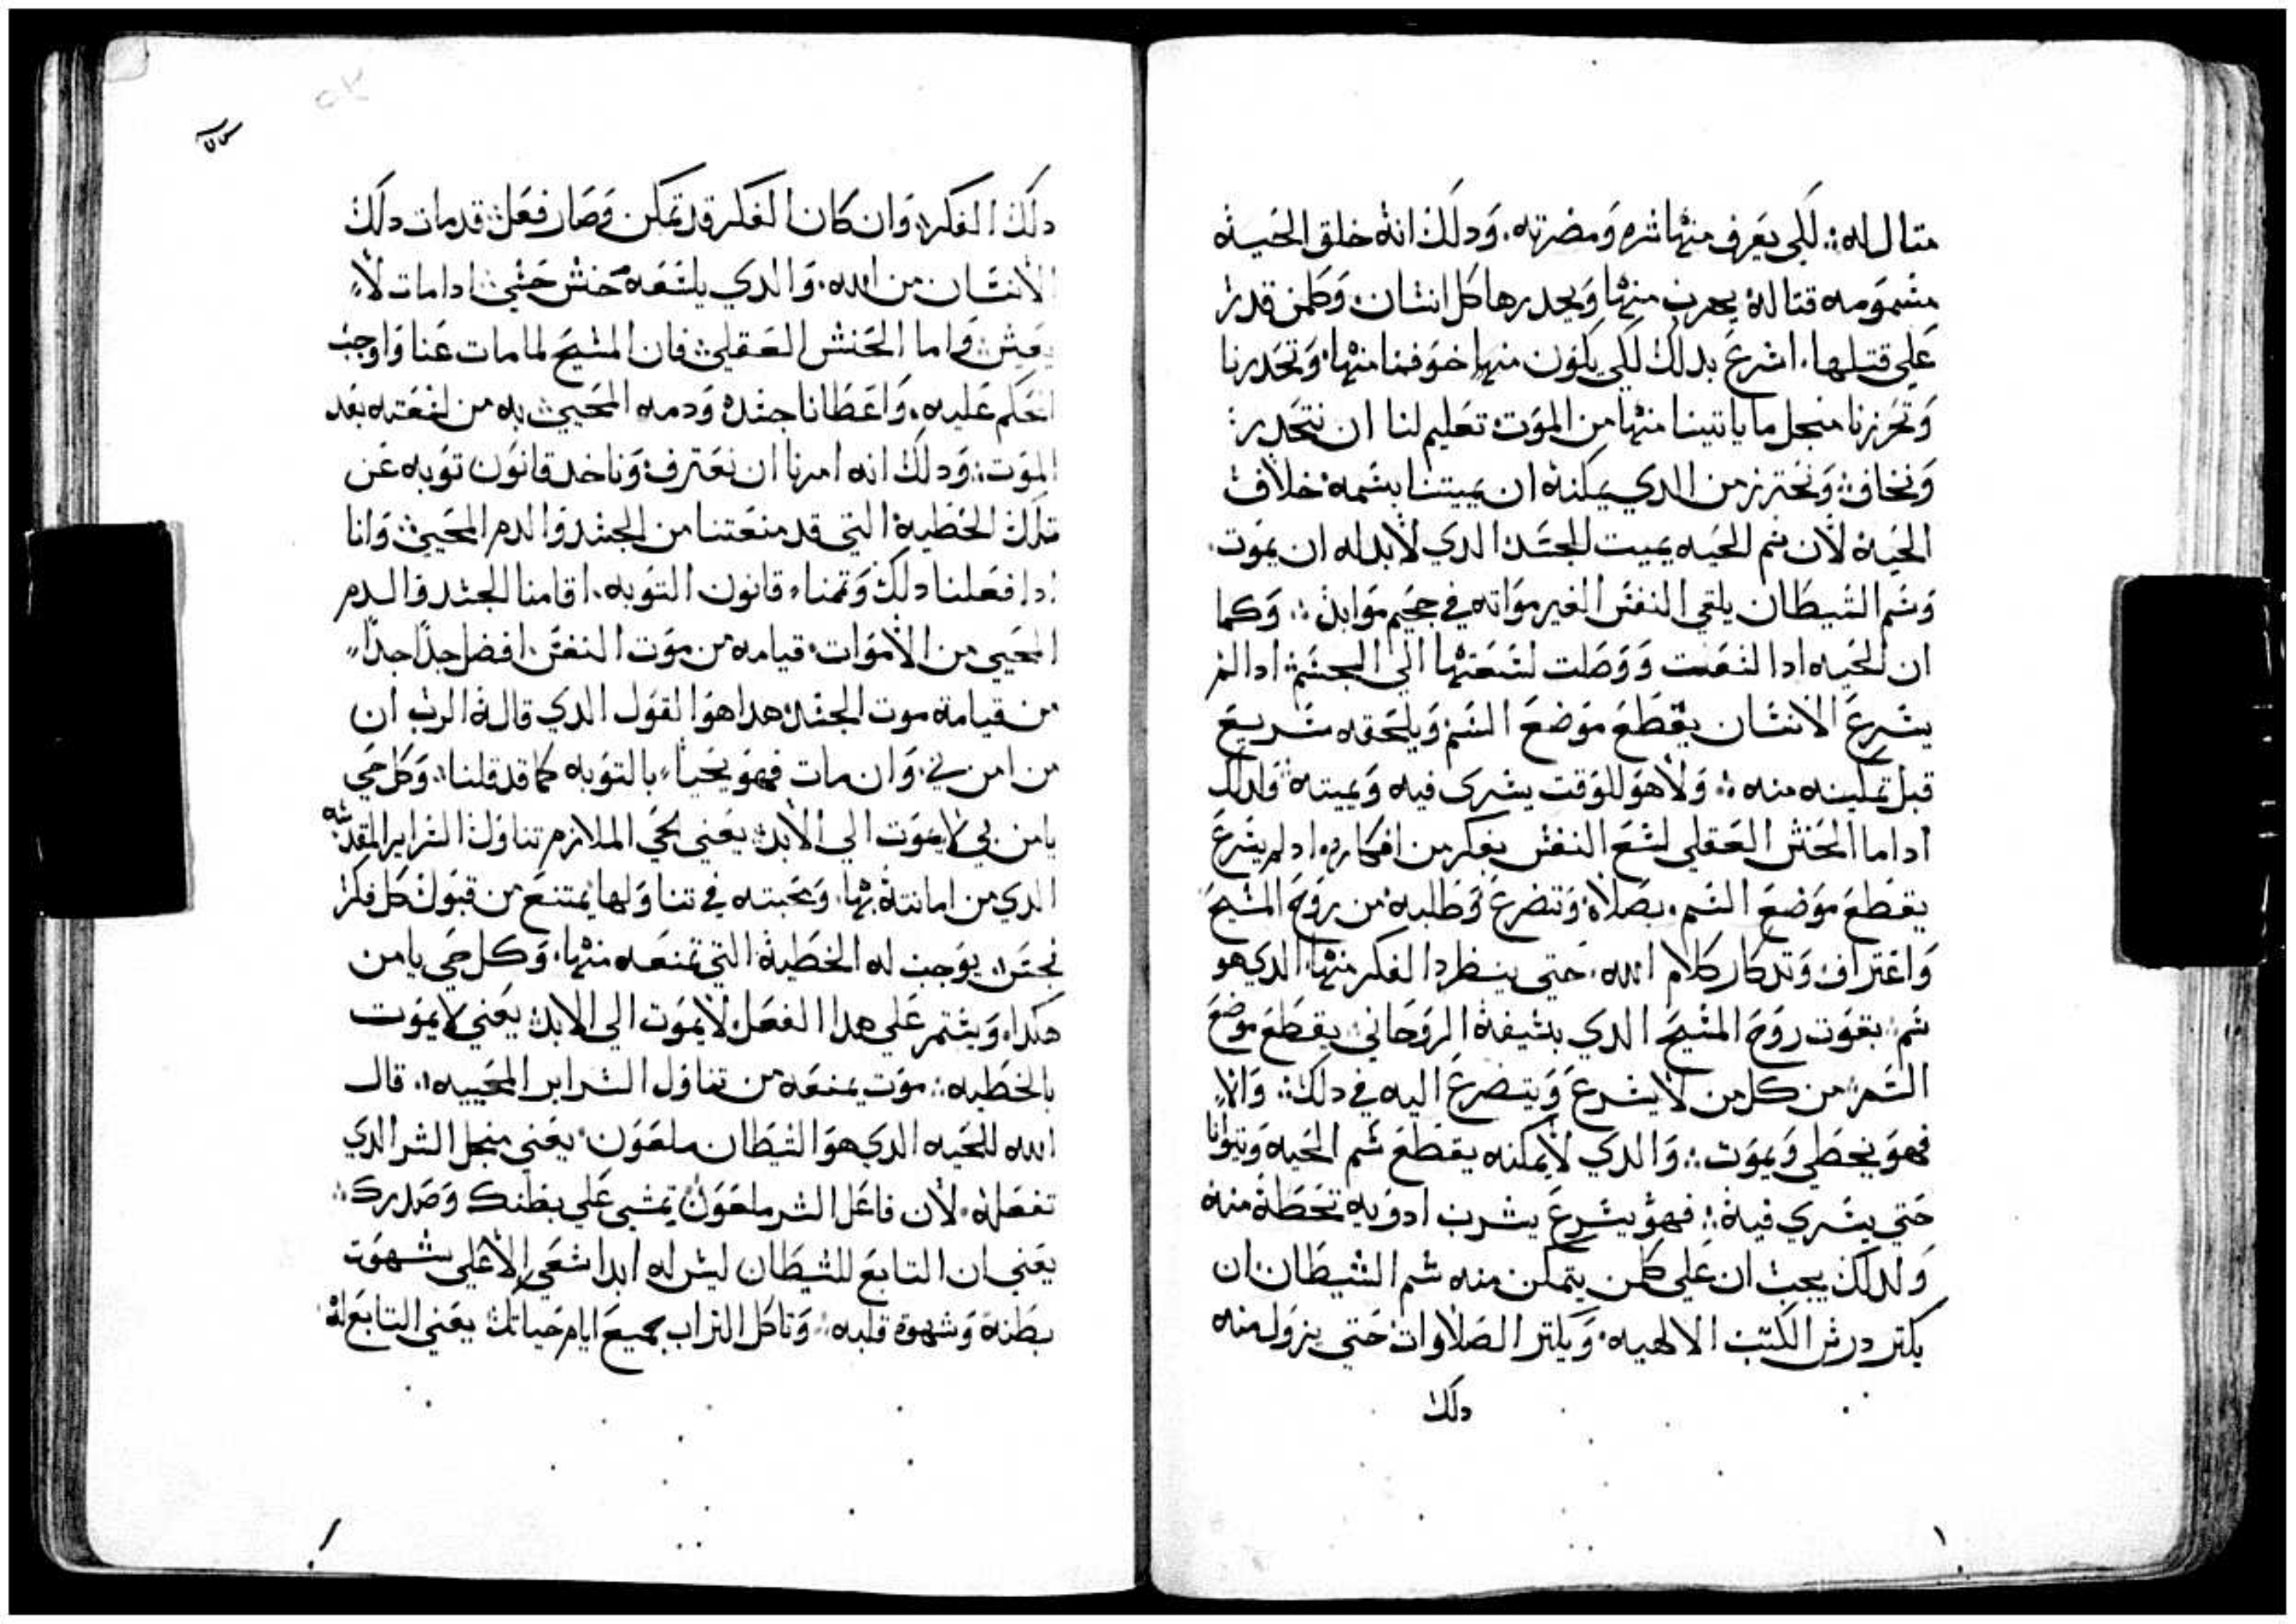 مثال له ؞ لكي يعرف منها شره ومضرته. ودلك انه خلق الحيه
مسمومه قتاله يهرب منها ويحدرها كل انسان وكلمن قدر
علي قتلها. اسرع بدلك لكي يكون منها خوفنا منها وتحدرنا
وتحرزنا منجل ما ياتينا منها من الموت تعليم لنا ان نتحدر
ونخاف ونحترز من الدي يمكنه ان يميتنا بسمه خلاف
الحيه لان سم الحيه يميت الجسد الدي لابد له ان يموت.
وسم الشيطان يلقي النفس الغير مواته في جحيم موابد ؞ وكما
ان الحيه ادا لسعت ووصلت لسعتها الي الجسم ادا لم
يسرع الانسان يقطع موضع السم ويلحقه سريع
قبل تمكينه منه ؞ ولا هو للوقت يسري فيه ويميته ولدلك
اداما الحنش العقلي لسع النفس بفكر من افكاره ادا لم يسرع
يقطع موضع السم. بصلاة وتضرع وطلبه من روح المسيح
واعتراف وتدكار كلام الله. حتي ينطرد الفكر منها الدي هو
سم بقوت روح المسيح الدي بسيفه الروحاني يقطع موضع
السم من كل من لا يسرع ويتضرع اليه في دلك ؞ والا
فهو يخطي ويموت ؞ والدي لا يمكنه يقطع سم الحيه ويتوانا
حتي يسري فيه ؞ فهو يسرع يشرب ادويه تحطه منه
ولدلك يجب ان علي كلمن يتمكن منه سم الشيطان ان
يكتر درس الكتب الالهيه. ويكتر الصلاوات حتي يزول منه
دلك
دلك الفكر وان كان الفكر قد تمكن وصار فعل قد مات دلك
الانسان من الله. والدي يلسعه حنش حسي ادا مات لا
يعيش واما الحنش العقلي فان المسيح لما مات عنا واوجب
الحكم عليه. واعطانا جسده ودمه المحيي به من لسعته بعد
الموت ؞ ودلك انه امرنا ان نعترف وناخد قانون توبه عن
تلك الخطيه التي قد منعتنا من الجسد والدم المحيي وانا
ادا فعلنا دلك وتمنا قانون التوبه. اقامنا الجسد والدم
المحيي من الاموات قيامه من موت النفس افضل جدا جدا
من قيامة موت الجسد هدا هو القول الدي قاله الرب ان
من امن بي وان مات فهو يحيا بالتوبه كما قد قلنا وكل حي
يامن بي لا يموت الي الابد يعني بحي الملازم تناول السراير المقدسه
الدي من امانته بها. ومحبته في تناولها يمتنع من قبول كل فكر
نجس يوجب له الخطيه التي تمنعه منها. وكل حي يامن
هكدا. ويستمر علي هدا الفعل لا يموت الي الابد يعني لا يموت
بالخطيه ؞ موت يمنعه من تناول السراير المحييه. قال
الله للحيه الدي هو الشيطان ملعون يعني منجل الشر الدي
تفعله. لان فاعل الشر ملعون تمشي علي بطنك وصدرك ؞
يعني ان التابع للشيطان ليس له ابدا سعي الا علي شهوت
بطنه وشهوة قلبه. وتاكل التراب جميع ايام حياتك يعني التابع له